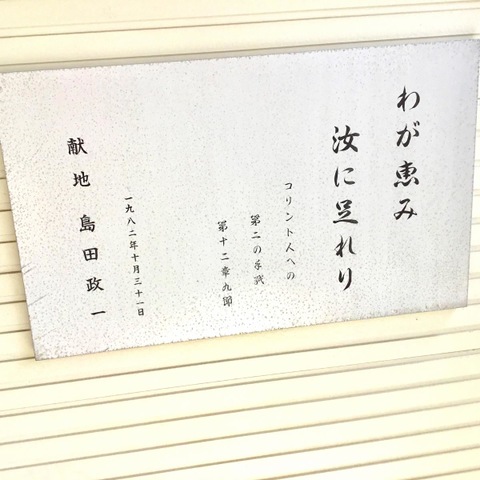 わが恵み
汝に足れり
コリント人への
第二の手紙
第十二章九節
一九八二年十月三十一日
献地 島田政一